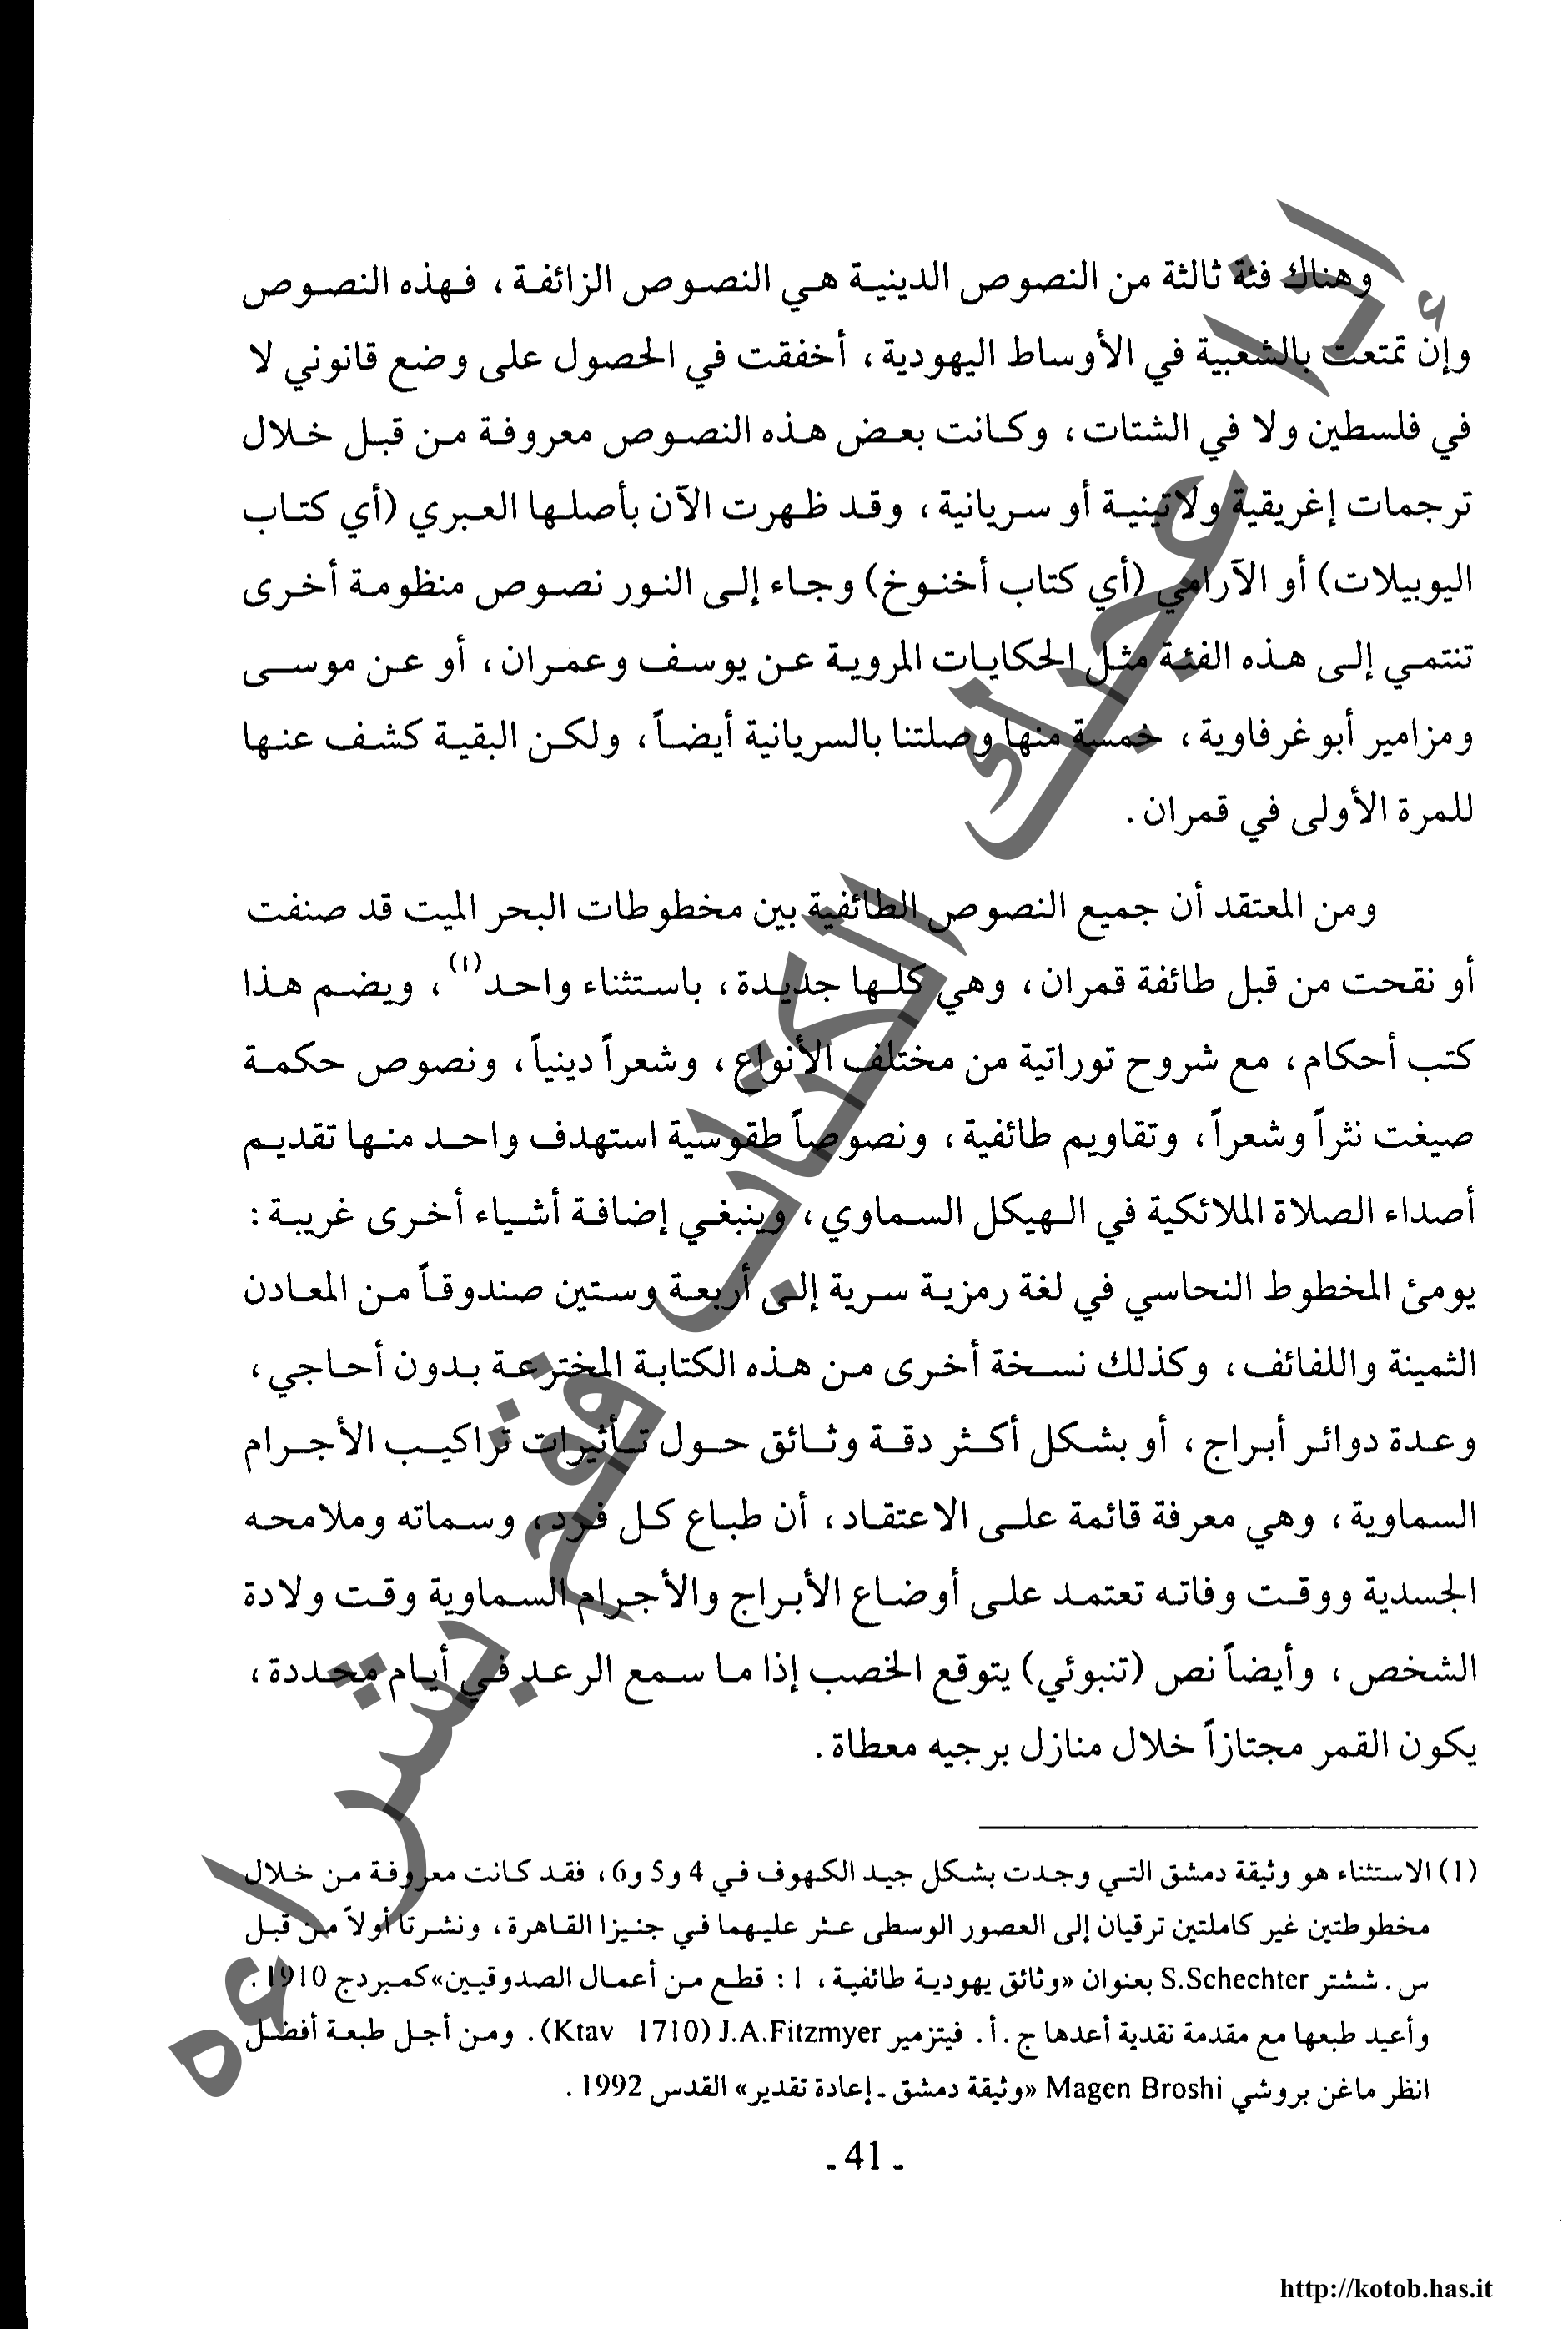 وهناك فئة ثالثة من النصوص الدينية هي النصوص الزائفة، فهذه النصوص
وإن تمتعت بالشعبية في الأوساط اليهودية، أخفقت في الحصول على وضع قانوني لا
في فلسطين ولا في الشتات، وكانت بعض هذه النصوص معروفة من قبل خلال
ترجمات إغريقية ولاتينية أو سريانية، وقد ظهرت الآن بأصلها العبري (أي كتاب
اليوبيلات) أو الآرامي (أي كتاب أخنوخ) وجاء إلى النور نصوص منظومة أخرى
تنتمي إلى هذه الفئة مثل الحكايات المروية عن يوسف وعمران، أو عن موسى
ومزامير أبو غرفاوية، خمسة منها وصلتنا بالسريانية أيضاً، ولكن البقية كشف عنها
للمرة الأولى في قمران.
ومن المعتقد أن جميع النصوص الطائفية بين مخطوطات البحر الميت قد صنفت
أو نقحت من قبل طائفة قمران، وهي كلها جديدة، باستثناء واحد(١)، ويضم هذا
كتب أحكام، مع شروح توراتية من مختلف الأنواع، وشعراً دينياً، ونصوص حكمة
صيغت نثراً وشعراً، وتقاويم طائفية، ونصوصاً طقوسية استهدف واحد منها تقديم
أصداء الصلاة الملائكية في الهيكل السماوي، وينبغي إضافة أشياء أخرى غريبة:
يومئ المخطوط النحاسي في لغة رمزية سرية إلى أربعة وستين صندوقاً من المعادن
الثمينة واللفائف، وكذلك نسخة أخرى من هذه الكتابة المخترعة بدون أحاجي،
وعدة دوائر أبراج، أو بشكل أكثر دقة وثائق حول تأثيرات تراكيب الأجرام
السماوية، وهي معرفة قائمة على الاعتقاد، أن طباع كل فرد، وسماته وملامحه
الجسدية ووقت وفاته تعتمد على أوضاع الأبراج والأجرام السماوية وقت ولادة
الشخص، وأيضاً نص (تنبوئي) يتوقع الخصب إذا ما سمع الرعد في أيام محددة،
يكون القمر مجتازاً خلال منازل برجيه معطاة.
(1) الاستثناء هو وثيقة دمشق التي وجدت بشكل جيد الكهوف في 4 و5 و6، فقد كانت معروفة من خلال
مخطوطتين غير كاملتين ترقيان إلى العصور الوسطى عثر عليهما في جنيزا القاهرة، ونشرتا أولاً من قبل
س. ششتر S.Schechter بعنوان «وثائق يهودية طائفية، ١: قطع من أعمال الصدوقيين» كمبردج 1910.
وأعيد طبعها مع مقدمة نقدية أعدها ج. أ. فيتزمير J.A.Fitzmyer (Ktav 1710). ومن أجل طبعة أفضل
انظر ماغن بروشي Magen Broshi «وثيقة دمشق ـ إعادة تقدير» القدس 1992.
ـ 41 ـ
أنا عجبك الكتاب قم بشراءه
http://kotob.has.it